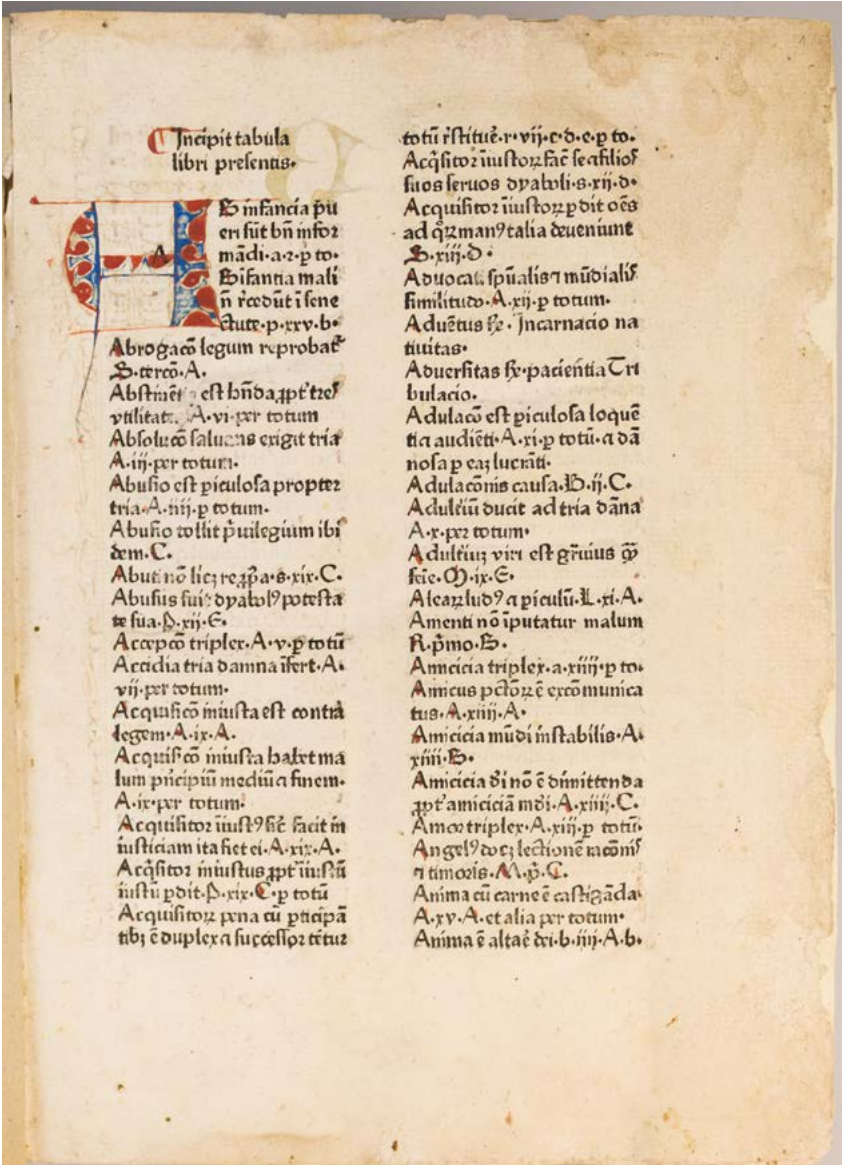 Incipit tabula
libri presentis.
A
B infancia p̄u
eri sūt bn̄ infor
mādi·a·2·p to·
B īfantia mali
n̄ r̄cedūt ī sene
ctute·p·xxv·b·
Abrogac̄o legum reprobat᷑
S·terc̄o·A·
est hn̄da
vtilitat A·vi·per totum
Absoluc̄o exigit tria
A·iij·per totum·
Abusio est piculosa propter
tria·A·iiij·p totum·
Abusio tollit p̄uilegium ibi
dem·C·
nō licꝫ s·xix·C·
Abusus dyabolꝰ potesta
te sua·P·xij·E·
Accepc̄o triplex·A·v·ꝑ totū
Accidia tria damna īfert·A·
vij·per totum·
Acquisic̄o iniusta est contra
legem·A·ix·A·
Acquisic̄o iniusta habet ma
lum pn̄cipiū mediū ⁊ finem·
A·ix·per totum·
Acquisitor īiustꝰ sic̄ facit in
iusticiam ita fiet ei·A·xix·A·
Acq̄sitor iniustus ꝓpt᷑ īiustū
iustū ꝑdit·P·xix·C·ꝑ totū
Acquisitoꝝ pena cū ꝑticipā
tibꝫ ē duplex ⁊ successor tētur
totū r̄stitue᷑·r·vij·c·d·e·ꝑ to·
Acq̄sitor īiustoꝝ fac̄ se ⁊ filios
suos seruos dyaboli·s·xij·d·
Acquisitor īiustoꝝ ꝑdit oēs
ad q̄ꝝ manꝰ talia deueniunt
S·xiij·D·
Aduocat sp̄ualis ⁊ mūdialis
similitudo·A·xij·ꝑ totum·
Aduētus · Incarnacio na
tiuitas·
Aduersitas · paciēntia Tri
bulacio·
Adulac̄o est ꝑiculosa loquē
ti ⁊ audiēti·A·xi·ꝑ totū·⁊ dā
nosa ꝑ eaꝫ lucrāti·
Adulac̄onis causa·B·ij·C·
Adult᷑iū ducit ad tria dāna
A·x·per totum·
Adult᷑iuꝫ viri est gr̄uius q̄ꝫ
feīe·M·ix·E·
Aleaꝝ ludꝰ ⁊ ꝑiculū·L·xi·A·
Amenti nō īputatur malum
R·p̄mo·B·
Amicicia triplex·a·xiiij·ꝑ to·
Amicus pctōꝝ ē excomunica
tus·A·xiiij·A·
Amicicia mūdi instabilis·A·
xiiij·B·
Amicicia d̄i nō ē dimittenda
ꝓpt᷑ amiciciā mdi·A·xiiij·C·
Amor triplex·A·xiij·ꝑ totū·
Angelꝰ docꝫ lectionē racōnis
⁊ timoris·M·p̄·C·
Anima cū carne ē castigāda·
A·xv·A·et alia per totum·
Anima ē dei·b·iiij·A·b·